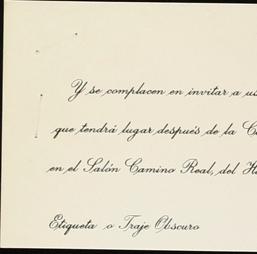 Y se complacen en invitar a
que tendrá lugar después de la
en el Salón Camino Real, del
Etiqueta o Traje Obscuro